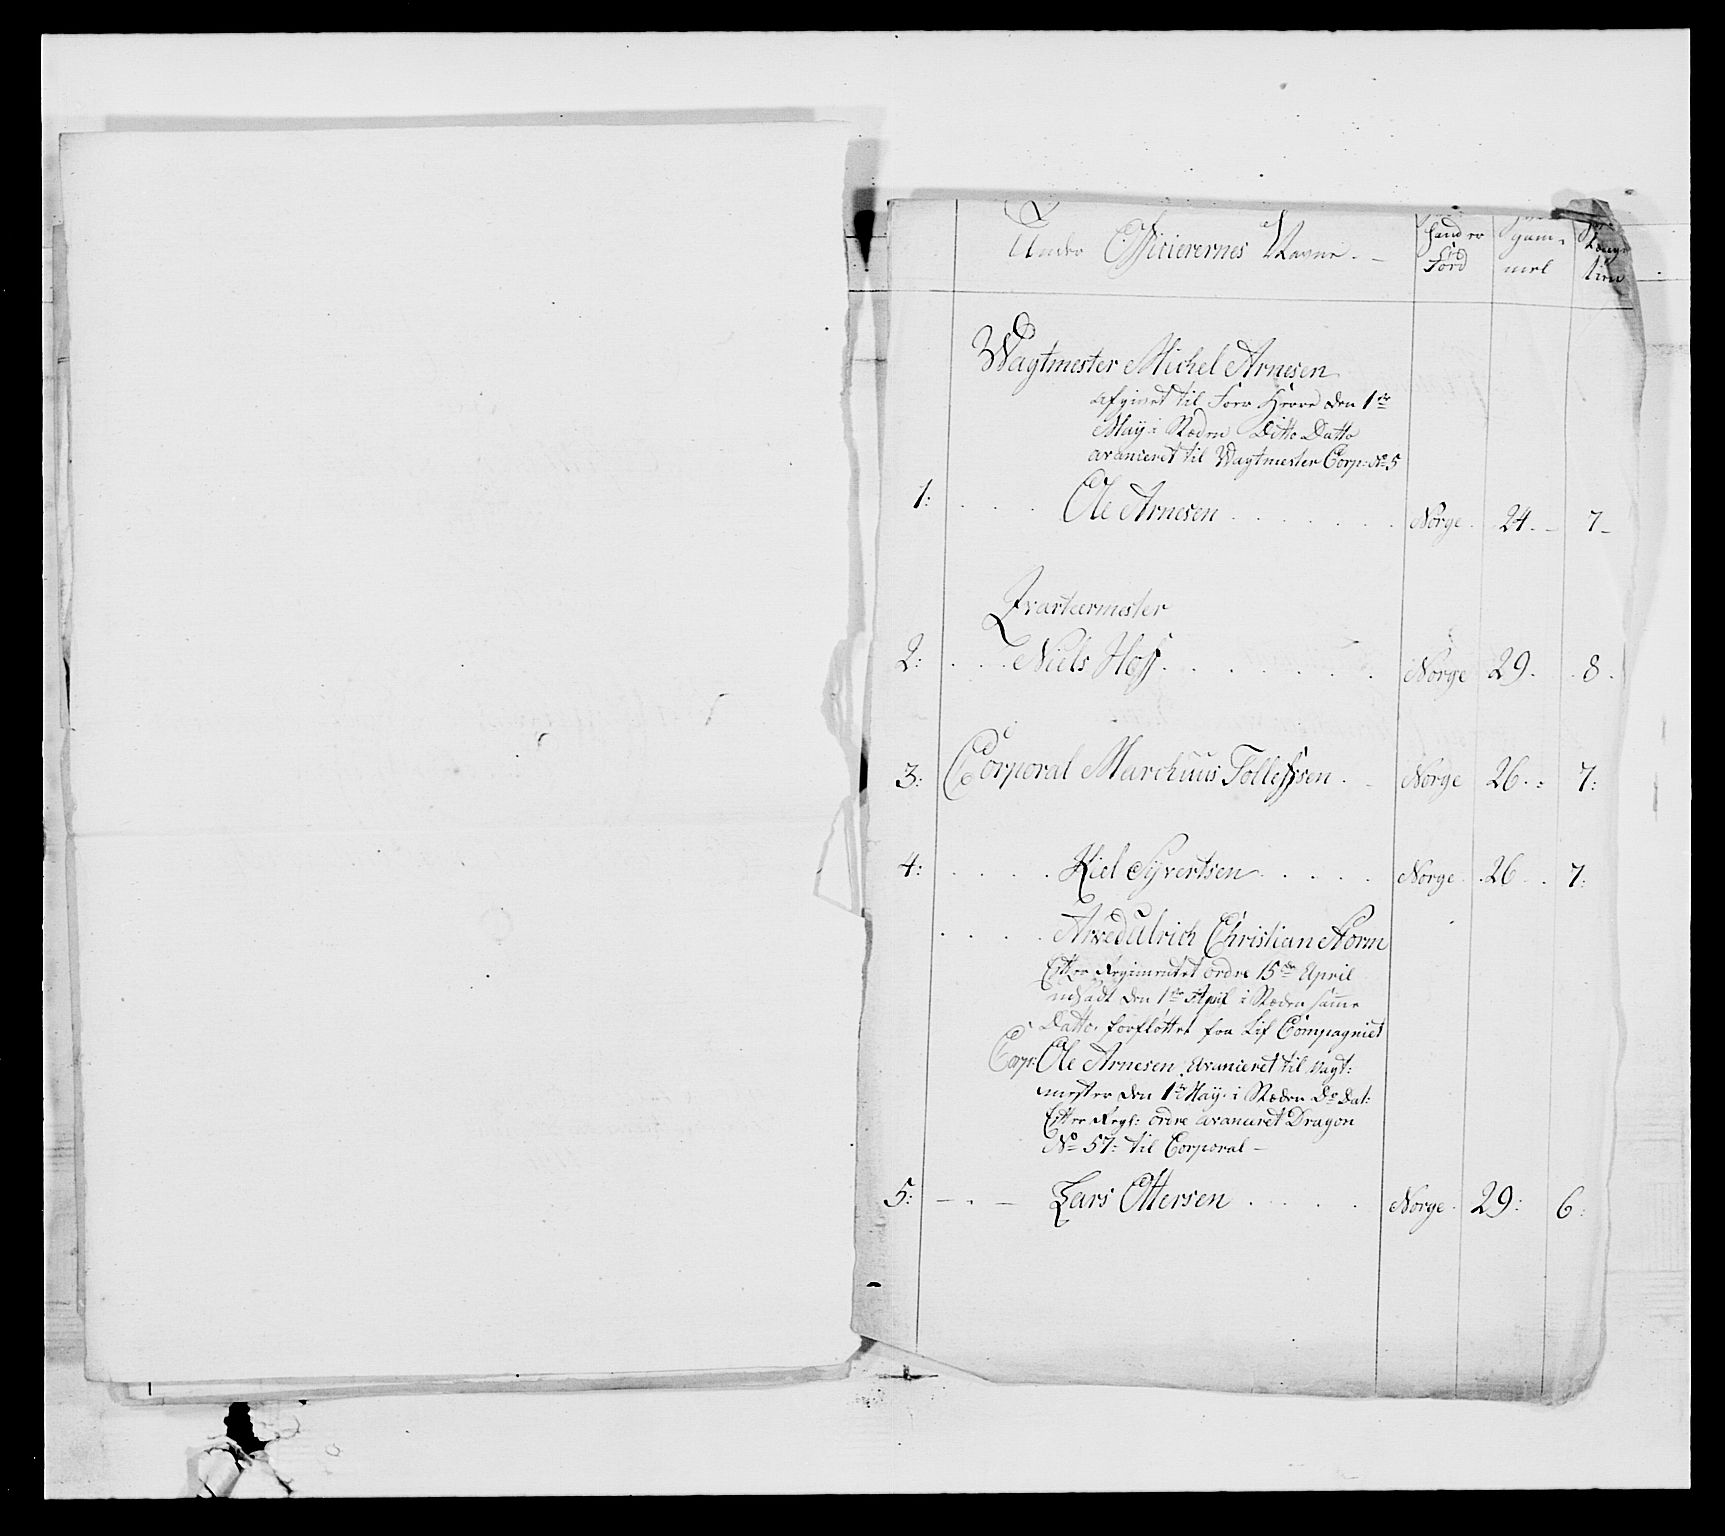 Under Officierernes Navne. hand er gam- Længe
Föd mel tient
Wagtmester Michel Arnesen
afginet til Herre den 1de
Maÿ i Stæden Ditto Datto
avanceret til Wagtmester Corp: No 5
1: Ole Arnesen Norge 24. 7
Qvarteermester
2: Niels Hoff Norge 29. 8.
3: Corporal Marchuus Tollefssen. Norge 26. 7:
4: Kiel Syvertsen Norge 26 7:
Arved Ulrich Christian Storm
Efter Regimentet ordre 15de April
udsadt den 1de April i Stæden samme
Datto, forfløttet fra Lif Compagniet
Corp: Ole Arnesen Avanceret til Vagt:
mester den 1de Maÿ i Stæden Do Dat:
Efter Regt: ordre avanceret Dragon
No 57: til Corporal
5: Lars Ottersen Norge 29: 6: